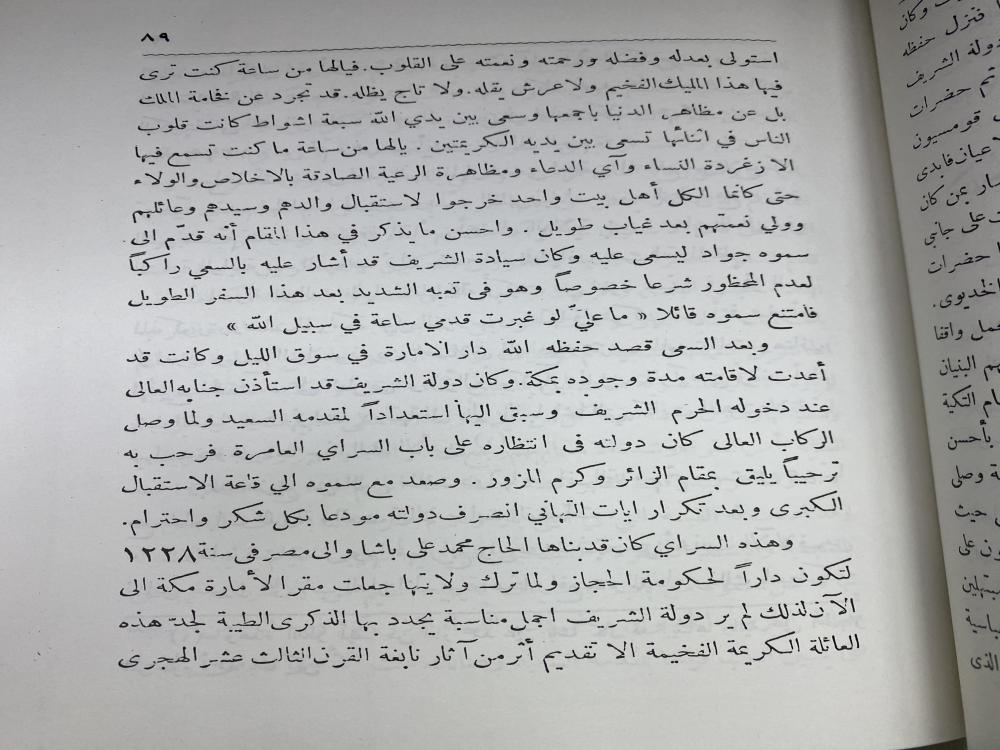 ٨٩
استولى بعدله وفضله ورحمته ونعمته على القلوب. فيالها من ساعة كنت ترى
فيها هذا المليك الفخيم ولا عرش يقله. ولا تاج يظله. قد تجرد عن فخامة الملك
بل عن مظاهر الدنيا باجمعها وسعى بين يدي الله سبعة اشواط كانت قلوب
الناس في اثنائها تسعى بين يديه الكريمتين . يالها من ساعة ما كنت تسمع فيها
الا زغردة النساء وآي الدعاء ومظاهرة الرعية الصادقة بالاخلاص والولاء
حتى كأنما الكل أهل بيت واحد خرجوا لاستقبال والدهم وسيدهم وعائلهم
وولي نعمتهم بعد غياب طويل . واحسن ما يذكر في هذا المقام أنه قدّم الى
سموه جواد ليسعى عليه وكان سيادة الشريف قد أشار عليه بالسعي راكباً
لعدم المحظور شرعا خصوصاً وهو فى تعبه الشديد بعد هذا السفر الطويل
فامتنع سموه قائلا « ما عليّ لو غبرت قدمي ساعة في سبيل الله »
وبعد السعى قصد حفظه الله دار الامارة في سوق الليل وكانت قد
أعدت لاقامته مدة وجوده بمكة. وكان دولة الشريف قد استأذن جنابه العالى
عند دخوله الحرم الشريف وسبق اليها استعداداً لمقدمه السعيد ولما وصل
الركاب العالى كان دولته فى انتظاره على باب السراي العامرة فرحب به
ترحيباً يليق بمقام الزائر وكرم المزور . وصعد مع سموه الي قاعة الاستقبال
الكبرى وبعد تكرار ايات التهاني انصرف دولته مودعا بكل شكر واحترام.
وهذه السراي كان قد بناها الحاج محمد على باشا والى مصر فى سنة ١٢٢٨
لتكون داراً لحكومة الحجاز ولما ترك ولايتها جعلت مقرا لأمارة مكة الى
الآن لذلك لم ير دولة الشريف اجمل مناسبة يجدد بها الذكرى الطيبة لجد هذه
العائلة الكريمة الفخيمة الا تقديم أثر من آثار نابغة القرن الثالث عشر الهجرى
وكان
فنزل حفظه
دولة الشريف
تم حضرات
قومسيون
عيان فابدى
سار بمن كان
ت على جانبي
ا حضرات
الخديوى.
مل واقفا
هم البنيان
ام التكية
بأحسن
ة وصلى
حيث
ون على
ـتهلين
ـاسية
الذى